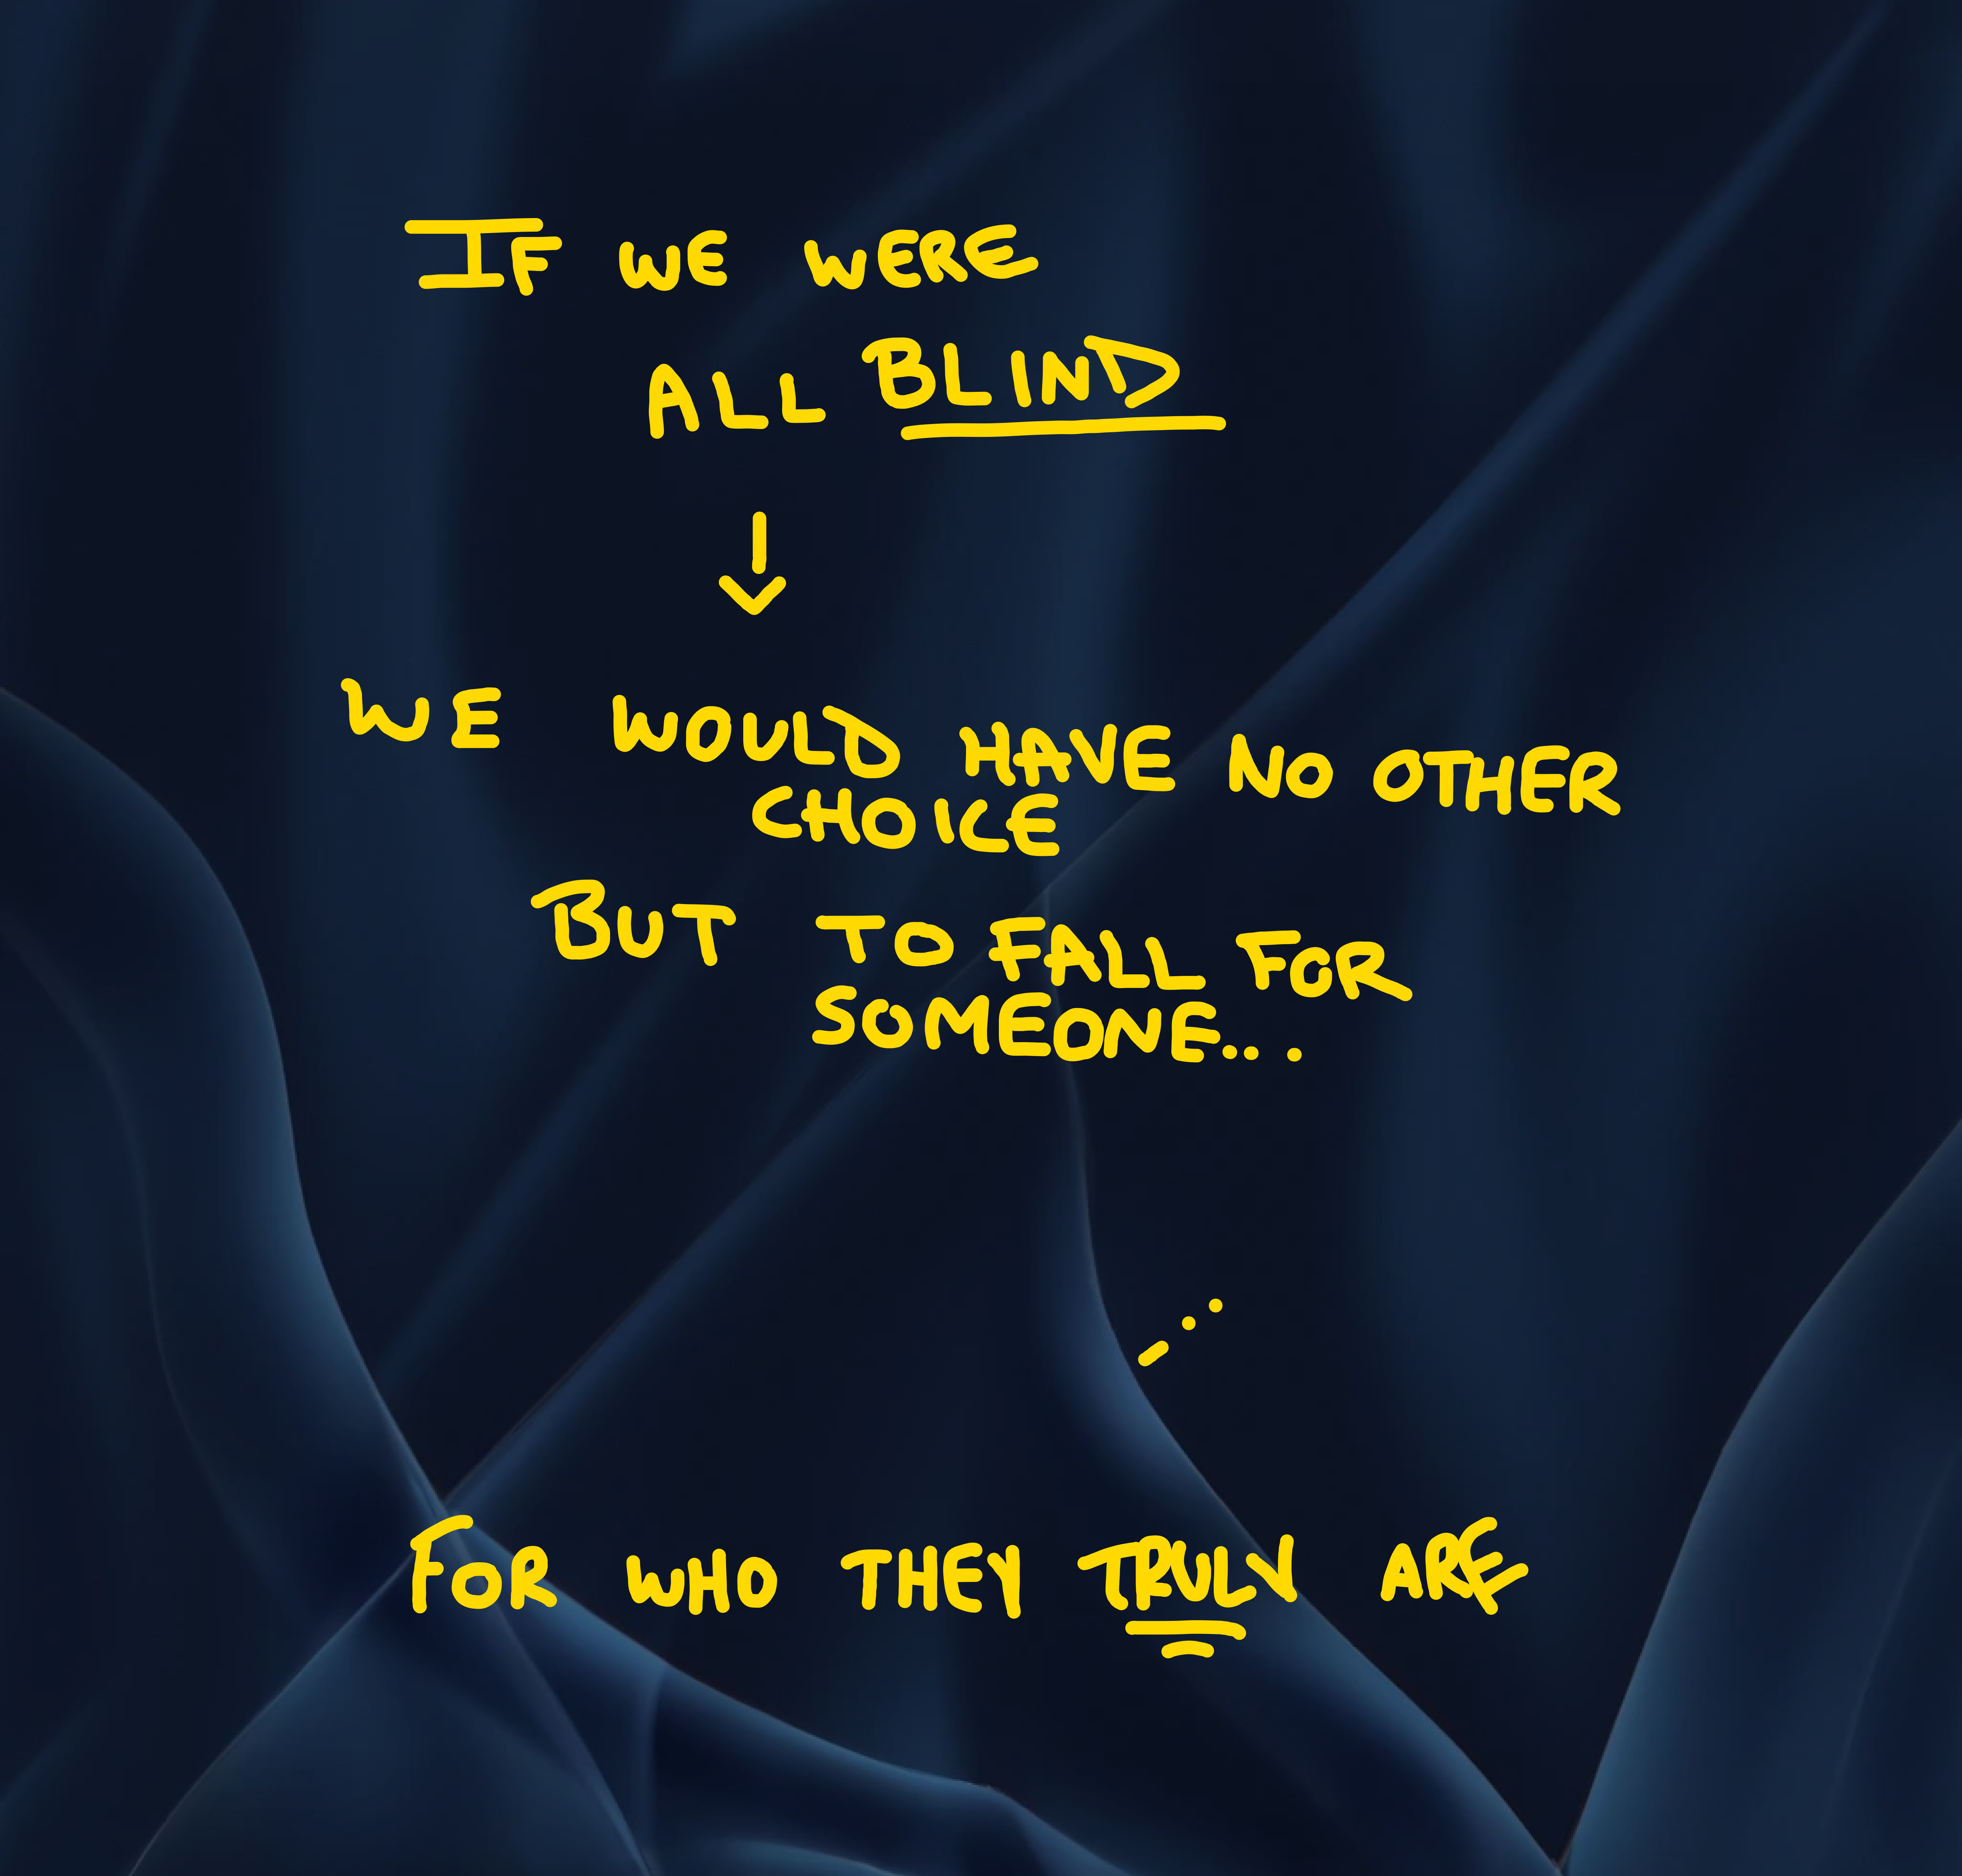 IF WE WERE
ALL BLIND
↓
WE WOULD HAVE NO OTHER
CHOICE
BUT TO FALL FOR
SOMEONE...
FOR WHO THEY TRULY ARE